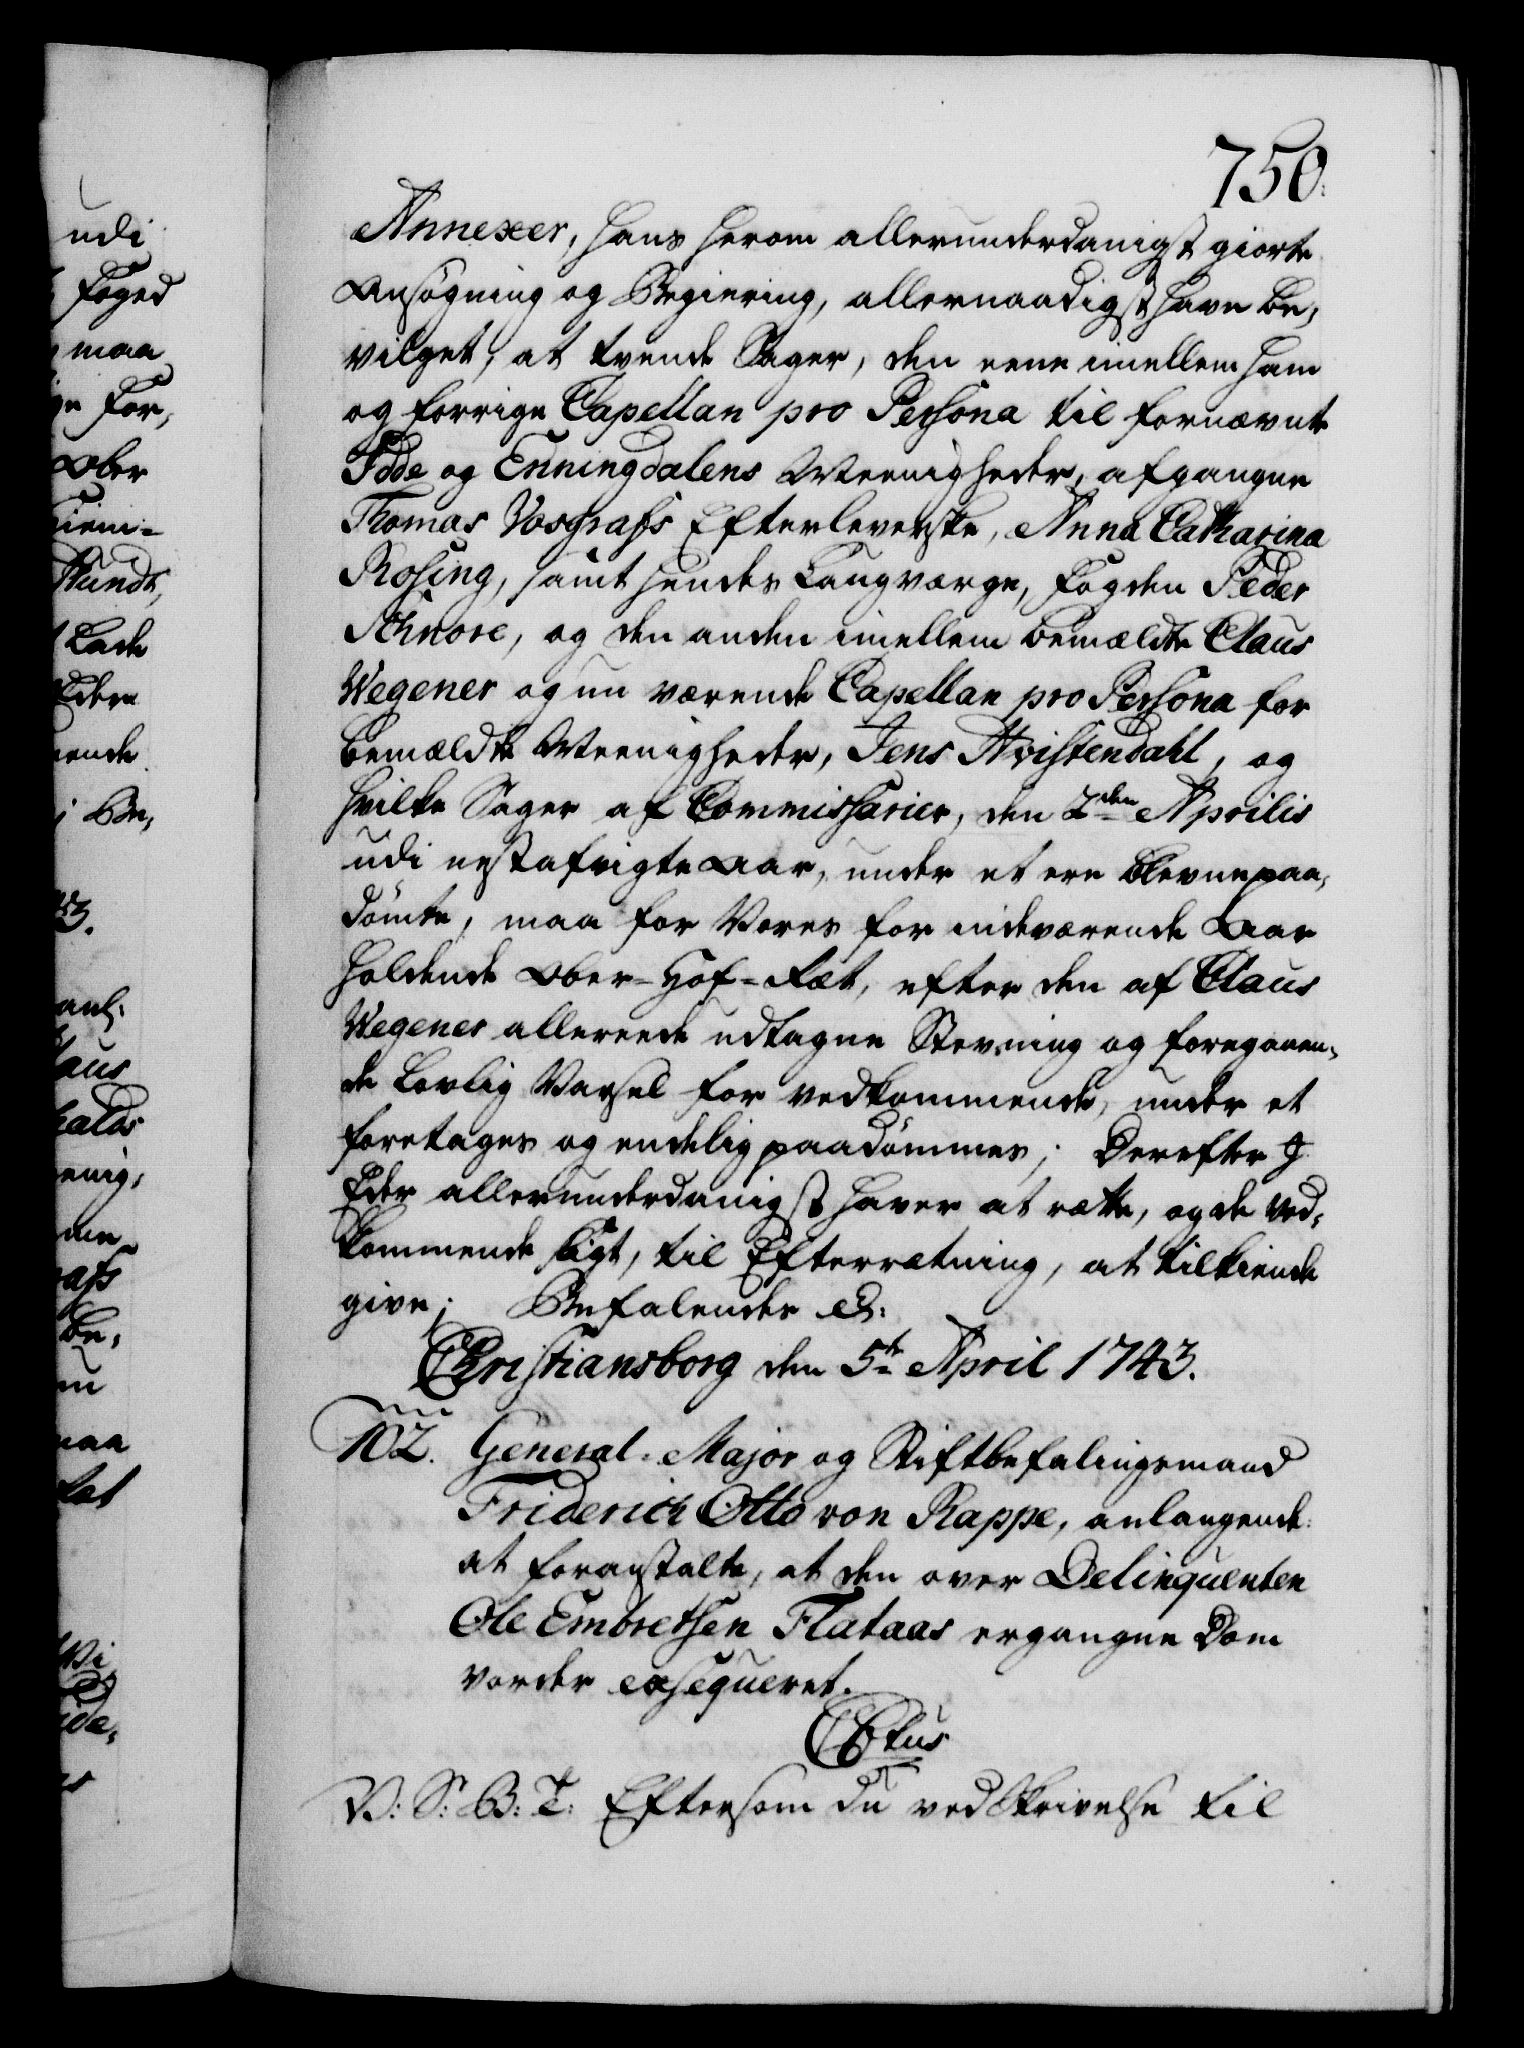 750.
Annexer, hans herom allerunderdanigst giorte
Ansøgning og Begiering, allernaadigst have be,
vilget, at tvende Sager, den eene imellem ham
og forrige Capellan pro Persona til fornævnte
Idde og Enningdalens Meenigheder, afgangne
Thomas Vosgrafs Efterleverske, Anna Catharina
Rosing, samt hendes Laugværge, Fogden Peder
og den anden imellem bemældte Claus
Wegener og nu værende Capellan pro Persona for
bemældte Meenigheder, Jens Qvistendahl, og
hvilke Sager af Commissarier, den 2den Aprilis
udi nestafvigte Aar, under et ere blevne paa,
dømte, maa for Vores for indeværende Aar
holdende Ober-Hof-Ræt, efter den af Claus
Wegener allereede udtagne Stevning og foregaaen,
de lovlig Varsel for vedkommende, under et
foretages og endelig paadømmes; Derefter I
Eder allerunderdanigst haver at rætte, og de ved,
kommende sligt, til Efterrætning, at tilkiende
give; Befalendes &:
Christiansborg den 5te April 1743.
102. General-Major og Stiftbefalingsmand
Friderich Otto von Rappe, anlangende
at foranstalte, at den over Delinquenten
Ole Embretsen Flataas ergangne Dom
vorder exsequeret.
C 6tus
V: S: B: T: Eftersom du ved Skrivelse til
udi
Foged
maa
For,
Ober
Lade
Be,
aus
enig,
Be,
maa
Vi